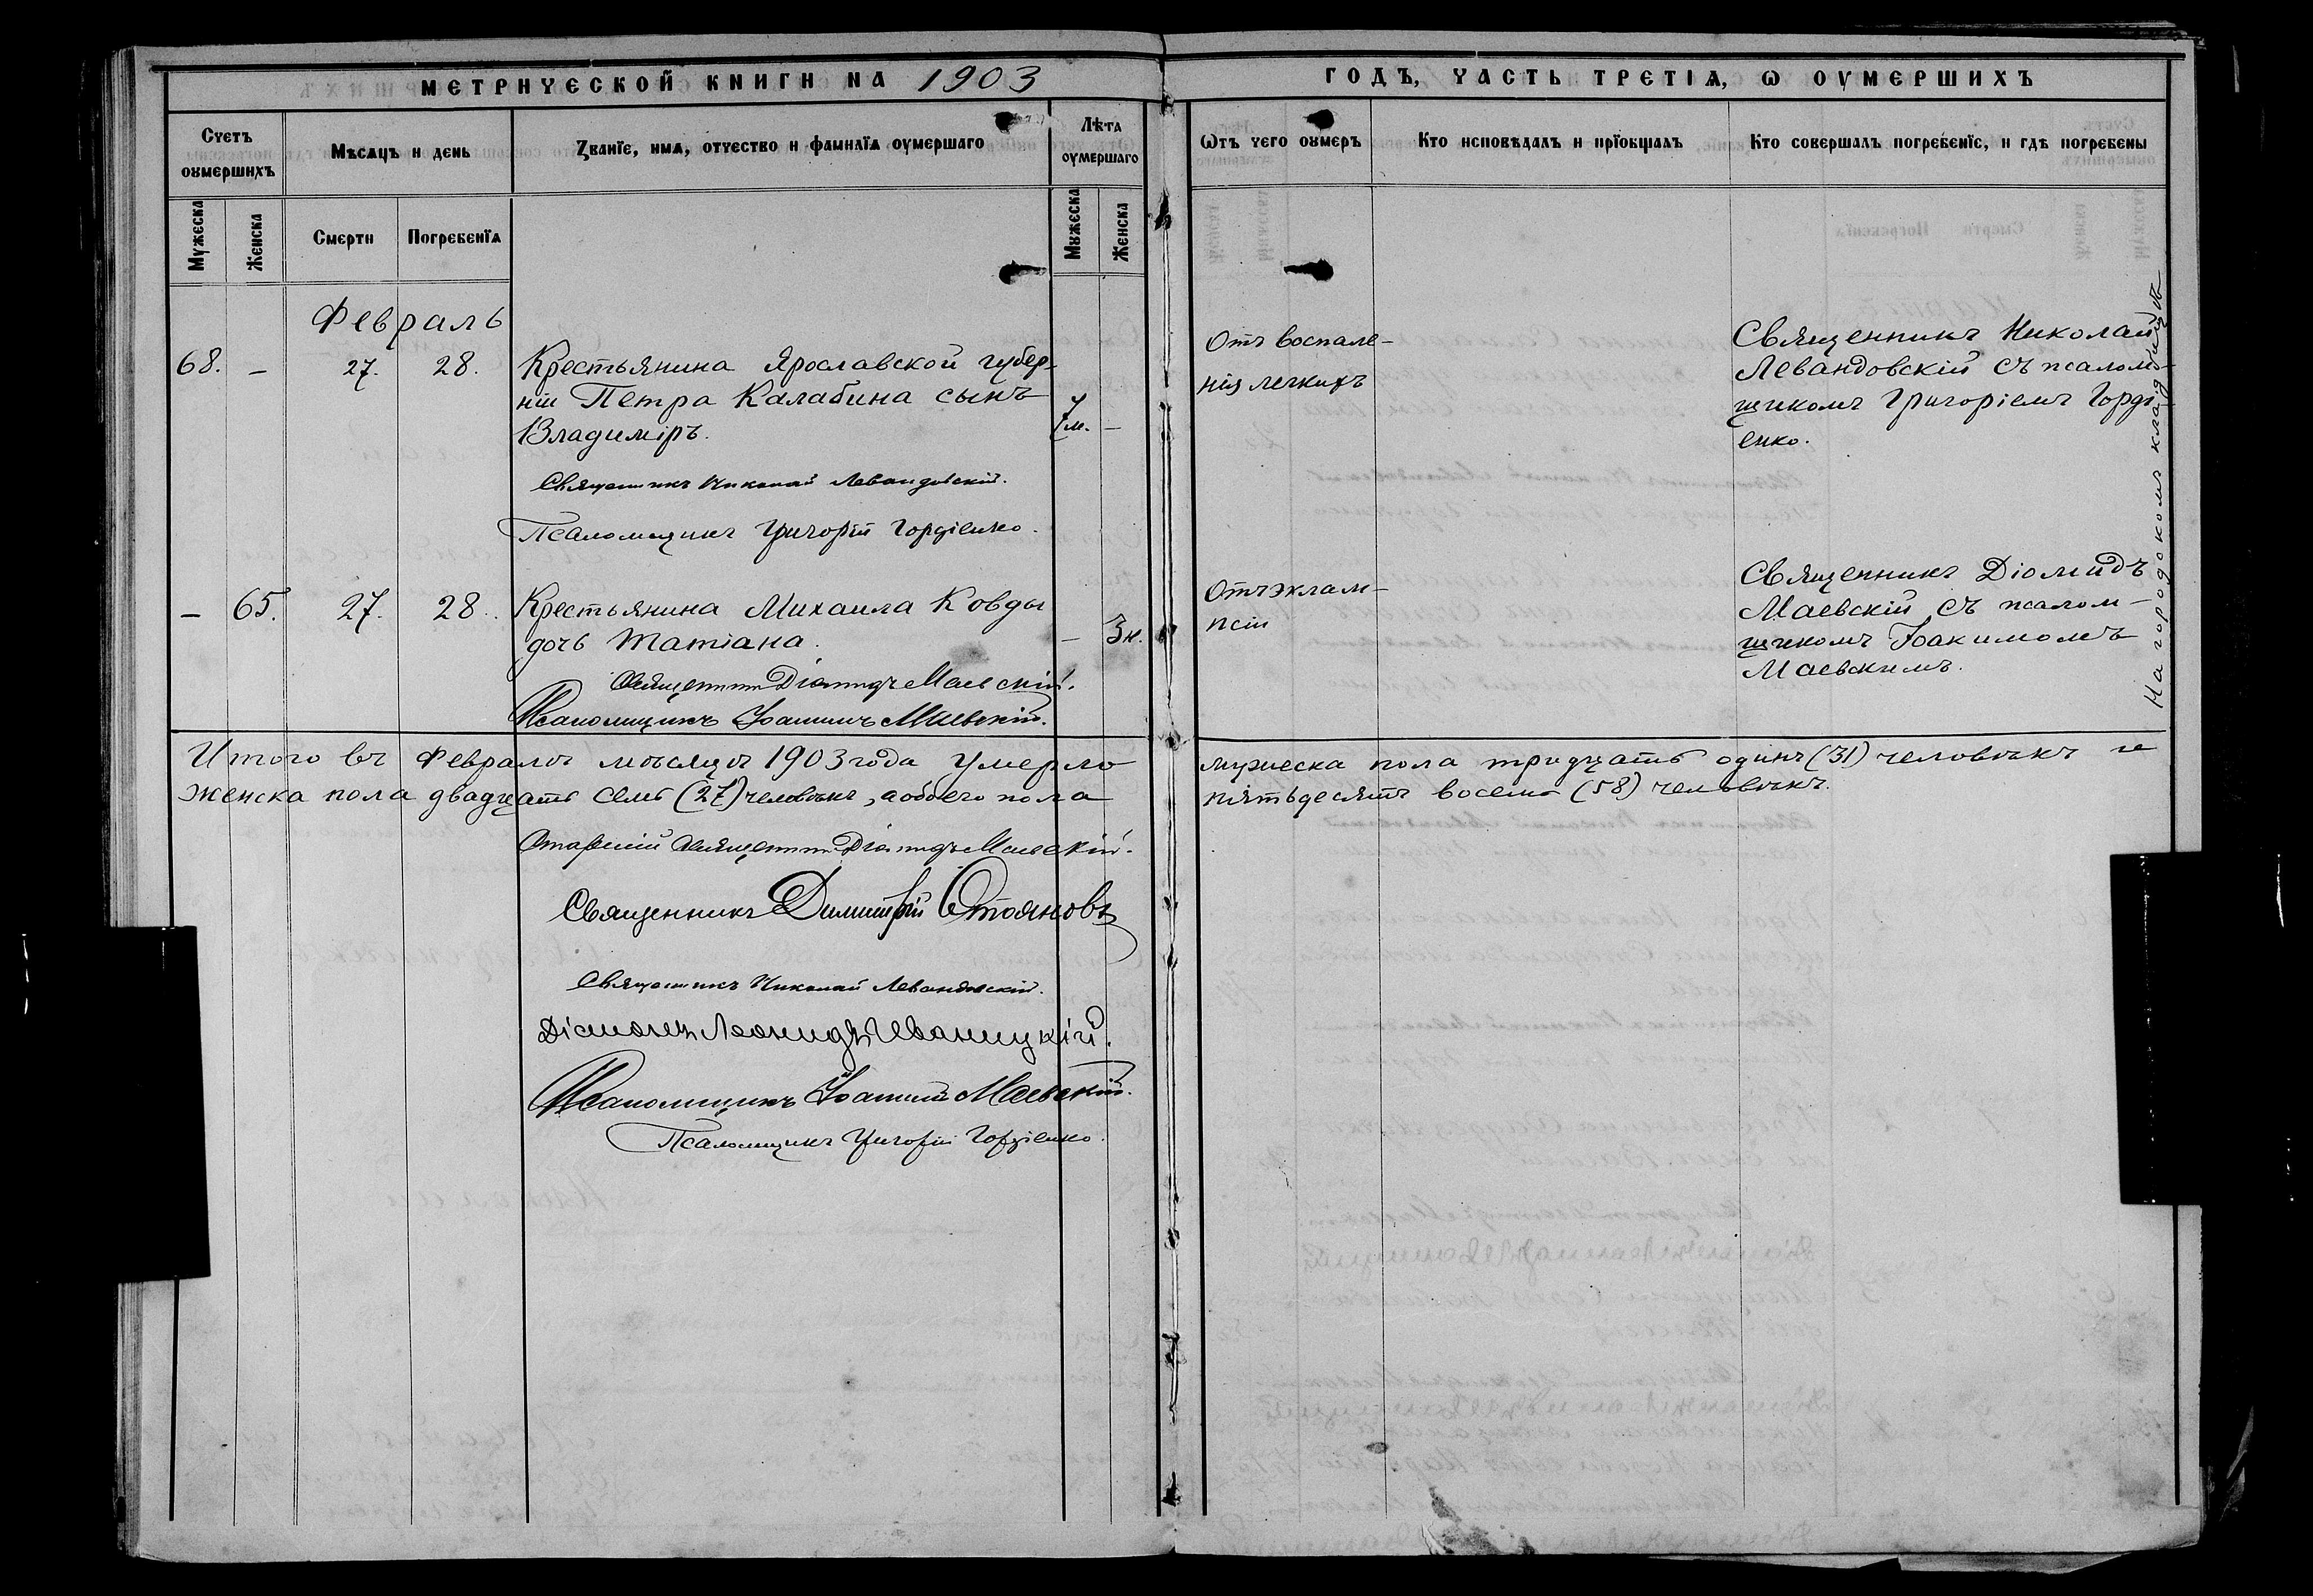 МЕТРИЧЕСКОЙ КНИГИ НА 1903
ГОДЪ, ЧАСТЬ ТРЕТІѦ, Ѡ ОУМЕРШИХЪ
Счетъ оумершихъ
Мѣсяцъ и день
Званїе, имѧ, отчество и фамилїѧ оумершаго
Лѣта оумершаго
Ѿтъ чего оумеръ
Кто исповѣдалъ и прїобщалъ
Кто совершалъ погребенїе, и гдѣ погребены
Мужеска
Женска
Смерти
Погребенїѧ
Мужеска
Женска
Февраль
68. – 27. 28. Крестьянина Ярославской губер-
ніи Петра Калабина сынъ
Владиміръ.
7 м. –
Священникъ Николай Левандовскій.
Псаломщикъ Григорій Гордіенко.
Отъ воспале-
нія легкихъ
Священникъ Николай
Левандовскій съ псалом-
щикомъ Григоріемъ Горді-
енко.
– 65. 27. 28. Крестьянина Михаила Ковды
дочь Татіана.
– 3 н.
Священникъ Діомидъ Маевскій.
Псаломщикъ Іоакимъ Маевскій.
Отъ эклам-
псіи
Священникъ Діомидъ
Маевскій съ псалом-
щикомъ Іоакимомъ
Маевскимъ.
На городскомъ кладбищѣ
Итого въ Февралѣ мѣсяцѣ 1903 года умерло мужеска пола тридцать одинъ (31) человѣкъ и
женска пола двадцать семь (27) человѣкъ, а обоего пола пятьдесятъ восемь (58) человѣкъ.
Старшій Священникъ Діомидъ Маевскій.
Священникъ Димитрій Стояновъ
Священникъ Николай Левандовскій.
Діаконъ Леонидъ Иваницкій.
Псаломщикъ Іоакимъ Маевскій.
Псаломщикъ Григорій Гордіенко.